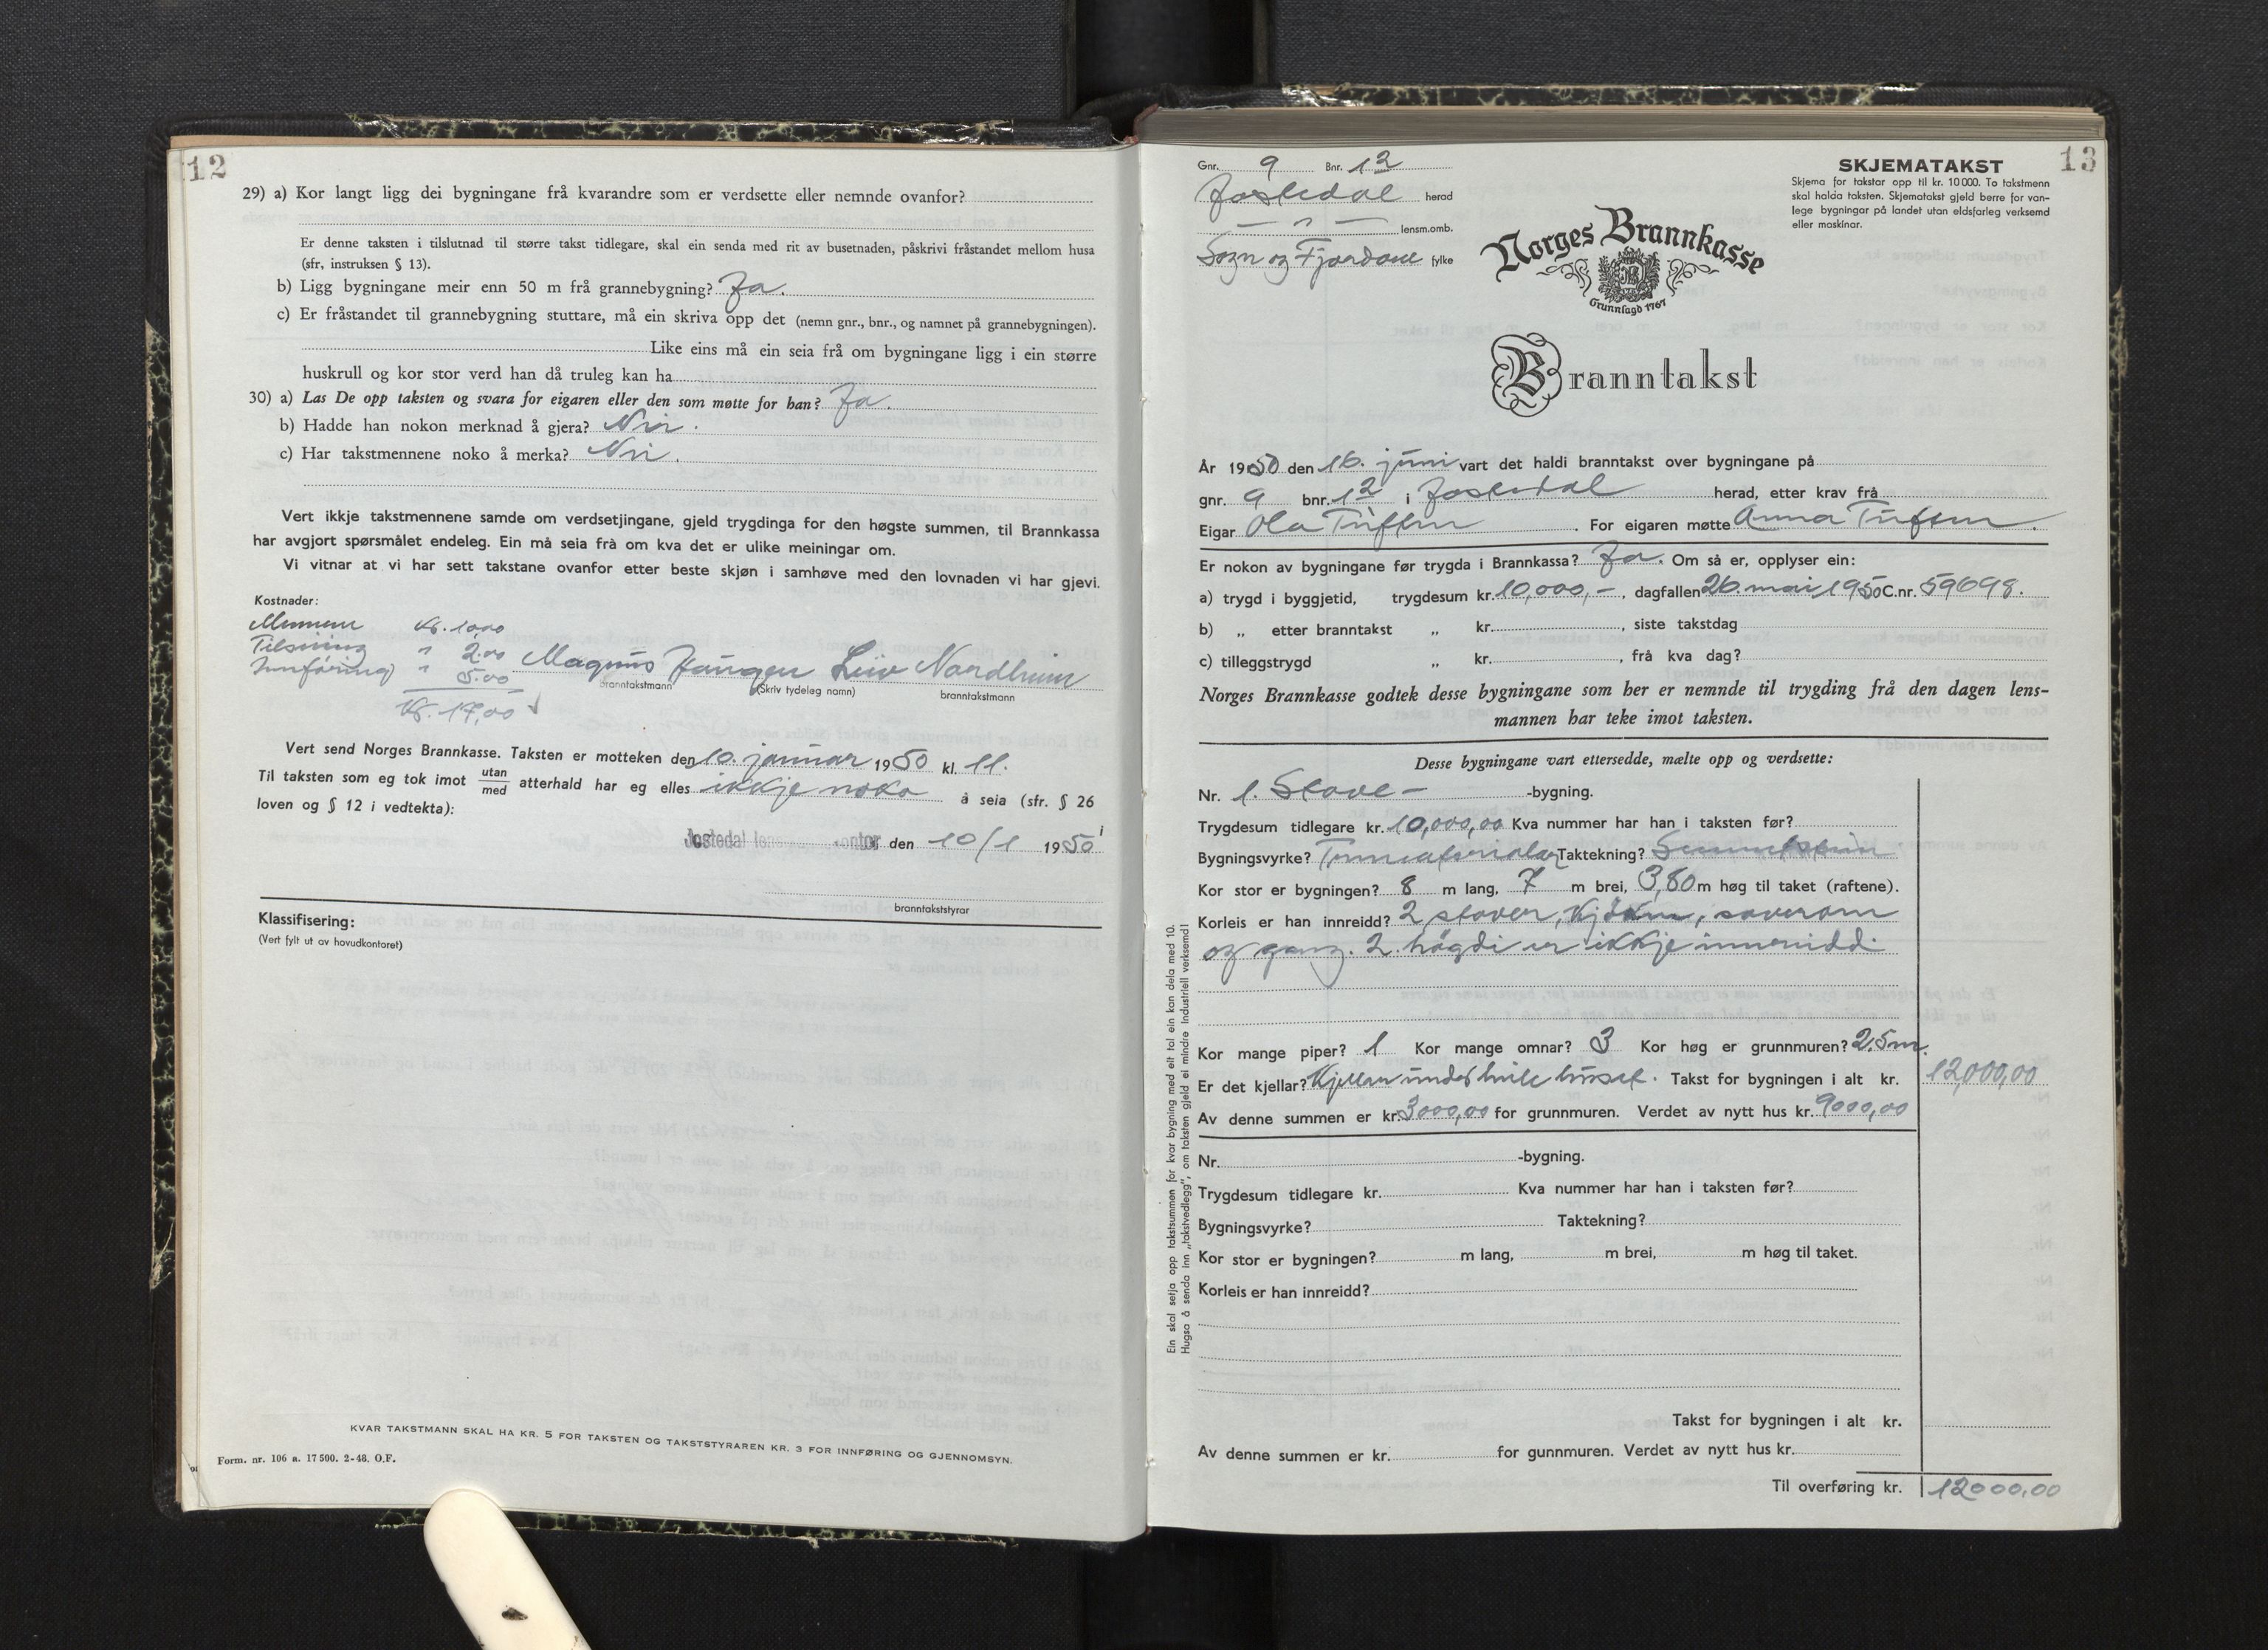 12
29) a) Kor langt ligg dei bygningane frå kvarandre som er verdsette eller nemnde ovanfor?
Er denne taksten i tilslutnad til større takst tidlegare, skal ein senda med rit av busetnaden, påskrivi fråstandet mellom husa
(sfr, instruksen § 13).
b) Ligg bygningane meir enn 50 m frå grannebygning? Ja.
c) Er fråstandet til grannebygning stuttare, må ein skriva opp det (nemn gnr., bnr., og namnet på grannebygningen).
Like eins må ein seia frå om bygningane ligg i ein større
huskrull og kor stor verd han då truleg kan ha
30) a) Las De opp taksten og svara for eigaren eller den som møtte for han? Ja.
b) Hadde han nokon merknad å gjera? Nei.
c) Har takstmennene noko å merka? Nei.
Vert ikkje takstmennene samde om verdsetjingane, gjeld trygdinga for den høgste summen, til Brannkassa
har avgjort spørsmålet endeleg. Ein må seia frå om kva det er ulike meiningar om.
Vi vitnar at vi har sett takstane ovanfor etter beste skjøn i samhøve med den lovnaden vi har gjevi.
Kostnader:
Mennene kr. 10,00
Tilsining " 2.00
Innføring " 5.00
Kr. 17,00
Magnus Fången Leiv Nordheim
branntakstmann (Skriv tydeleg namn) branntakstmann
Vert send Norges Brannkasse. Taksten er motteken den 10. januar 1950 kl. 11.
Til taksten som eg tok imot utan/med atterhald har eg elles ikkje noko å seia (sfr. § 26 i
loven og § 12 i vedtekta):
Jostedal lensmannskontor den 10/1 1950
branntakststyrar
Klassifisering:
(Vert fylt ut av hovudkontoret)
KVAR TAKSTMANN SKAL HA KR. 5 FOR TAKSTEN OG TAKSTSTYRAREN KR. 3 FOR INNFØRING OG GJENNOMSYN.
Form. nr. 106 a. 17 500. 2-48. O.F.
13
Gnr. 9 Bnr. 12
Jostedal herad
— " — lensm.omb.
Sogn og Fjordane fylke
SKJEMATAKST
Skjema for takstar opp til kr. 10 000. To takstmenn
skal halda taksten. Skjematakst gjeld berre for van-
lege bygningar på landet utan eldsfarleg verksemd
eller maskinar.
Norges Brannkasse
Grunnlagd 1767
Branntakst
År 1950 den 16. juni vart det haldi branntakst over bygningane på
gnr. 9 bnr. 12 i Jostedal herad, etter krav frå
Eigar Ola Tuften. For eigaren møtte Anna Tuften.
Er nokon av bygningane før trygda i Brannkassa? Ja. Om så er, opplyser ein:
a) trygd i byggjetid, trygdesum kr. 10,000,-, dagfallen 26. mai 1950 C.nr. 59698.
b) „ etter branntakst „ kr. , siste takstdag
c) tilleggstrygd „ kr. , frå kva dag?
Norges Brannkasse godtek desse bygningane som her er nemnde til trygding frå den dagen lens-
mannen har teke imot taksten.
Desse bygningane vart ettersedde, mælte opp og verdsette:
Nr. 1. Stove- -bygning.
Trygdesum tidlegare kr. 10,000,00 Kva nummer har han i taksten før?
Bygningsvyrke? Trematerialer Taktekning? Sementstein
Kor stor er bygningen? 8 m lang, 7 m brei, 3,80 m høg til taket (raftene).
Korleis er han innreidd? 2 stover, kjøken, soverom
og gang. 2. høgdi er ikkje innreidd.
Kor mange piper? 1 Kor mange omnar? 3 Kor høg er grunnmuren? 2,5m.
Er det kjellar? Kjellar under heile huset. Takst for bygningen i alt kr. 12,000,00
Av denne summen er kr. 3000,00 for grunnmuren. Verdet av nytt hus kr. 9000,00
Nr. -bygning.
Trygdesum tidlegare kr. Kva nummer har han i taksten før?
Bygningsvyrke? Taktekning?
Kor stor er bygningen? m lang, m brei, m høg til taket.
Korleis er han innreidd?
Takst for bygningen i alt kr.
Av denne summen er kr. for gunnmuren. Verdet av nytt hus kr.
Til overføring kr. 12000,00
Ein skal setja opp takstsummen for kvar bygning med eit tal ein kan dela med 10.
Hugsa å senda inn „takstvedlegg", om taksten gjeld ei mindre industriell verksemd!